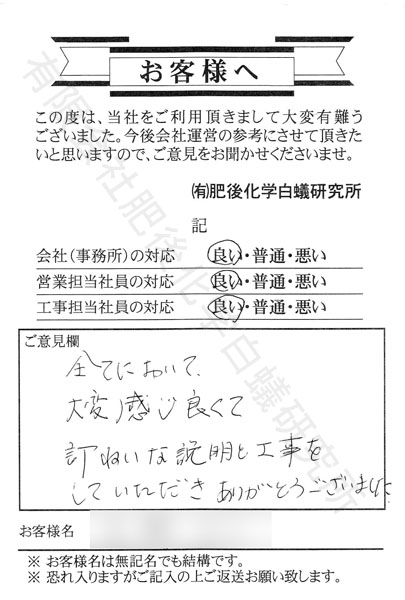 お客様へ
この度は、当社をご利用頂きまして大変有難う
ございました。今後会社運営の参考にさせて頂きた
いと思いますので、ご意見をお聞かせくださいませ。
㈲肥後化学白蟻研究所
記
会社（事務所）の対応 良い・普通・悪い
営業担当社員の対応 良い・普通・悪い
工事担当社員の対応 良い・普通・悪い
ご意見欄
全てにおいて、
大変感じ良くて
訂ねいな説明と工事を
していただきありがとうございました
お客様名
※ お客様名は無記名でも結構です。
※ 恐れ入りますがご記入の上ご返送お願い致します。
有限会社肥後化学白蟻研究所